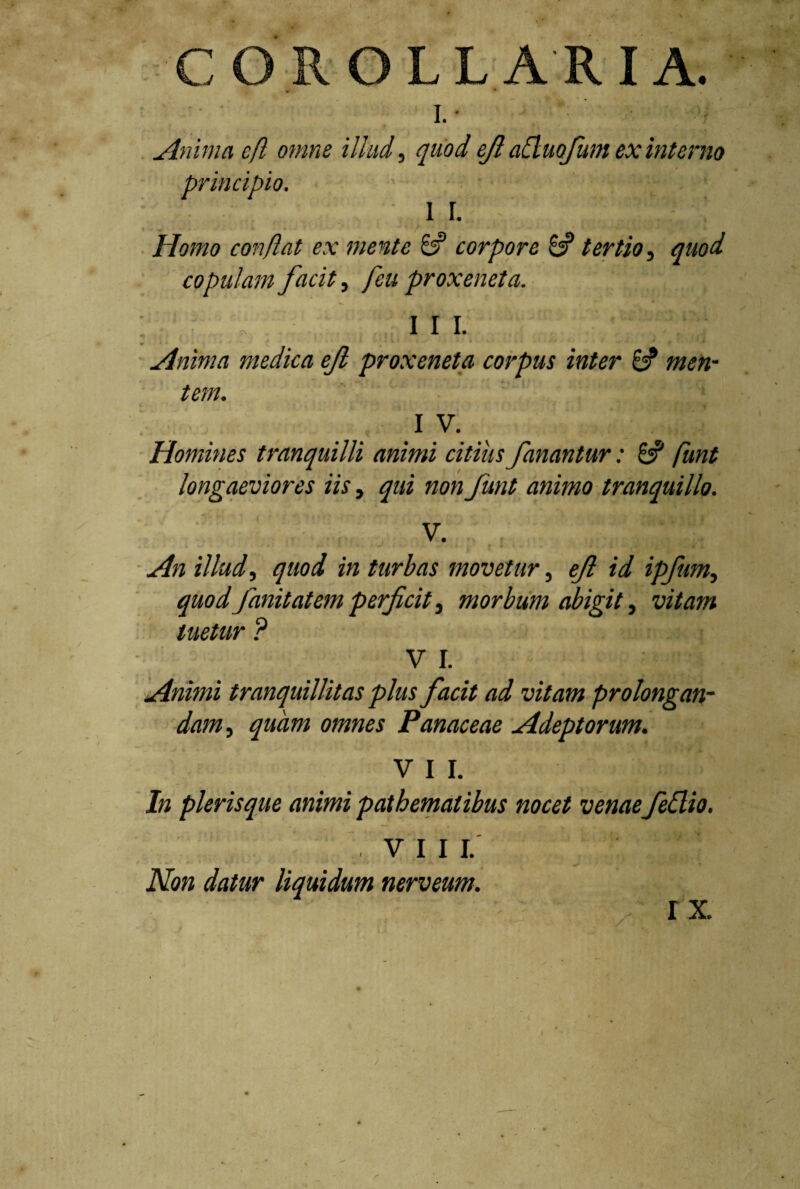 COROLLARIA.
I.
Anima eſt omne illud, quod eſt actuoſum ex interno
principio.
II.
Homo conſtat ex mente & corpore & tertio, quod
copulam facit, ſeu proxeneta.
III.
Anima medica eſt proxeneta corpus inter & men-
tem.
IV.
Homines tranquilli animi citiùs ſanantur: & ſunt
longaeviores iis, qui non ſunt animo tranquillo.
V.
An illud, quod in turbas movetur, eſt id ipſum,
quod ſanitatem perficit, morbum abigit, vitam
tuetur?
VI.
Animi tranquillitas plus facit ad vitam prolongan-
dam, quàm omnes Panaceae Adeptorum.
VII.
In plerisque animi pathematibus nocet venae ſectio.
VIII.
Non datur liquidum nerveum.
IX.